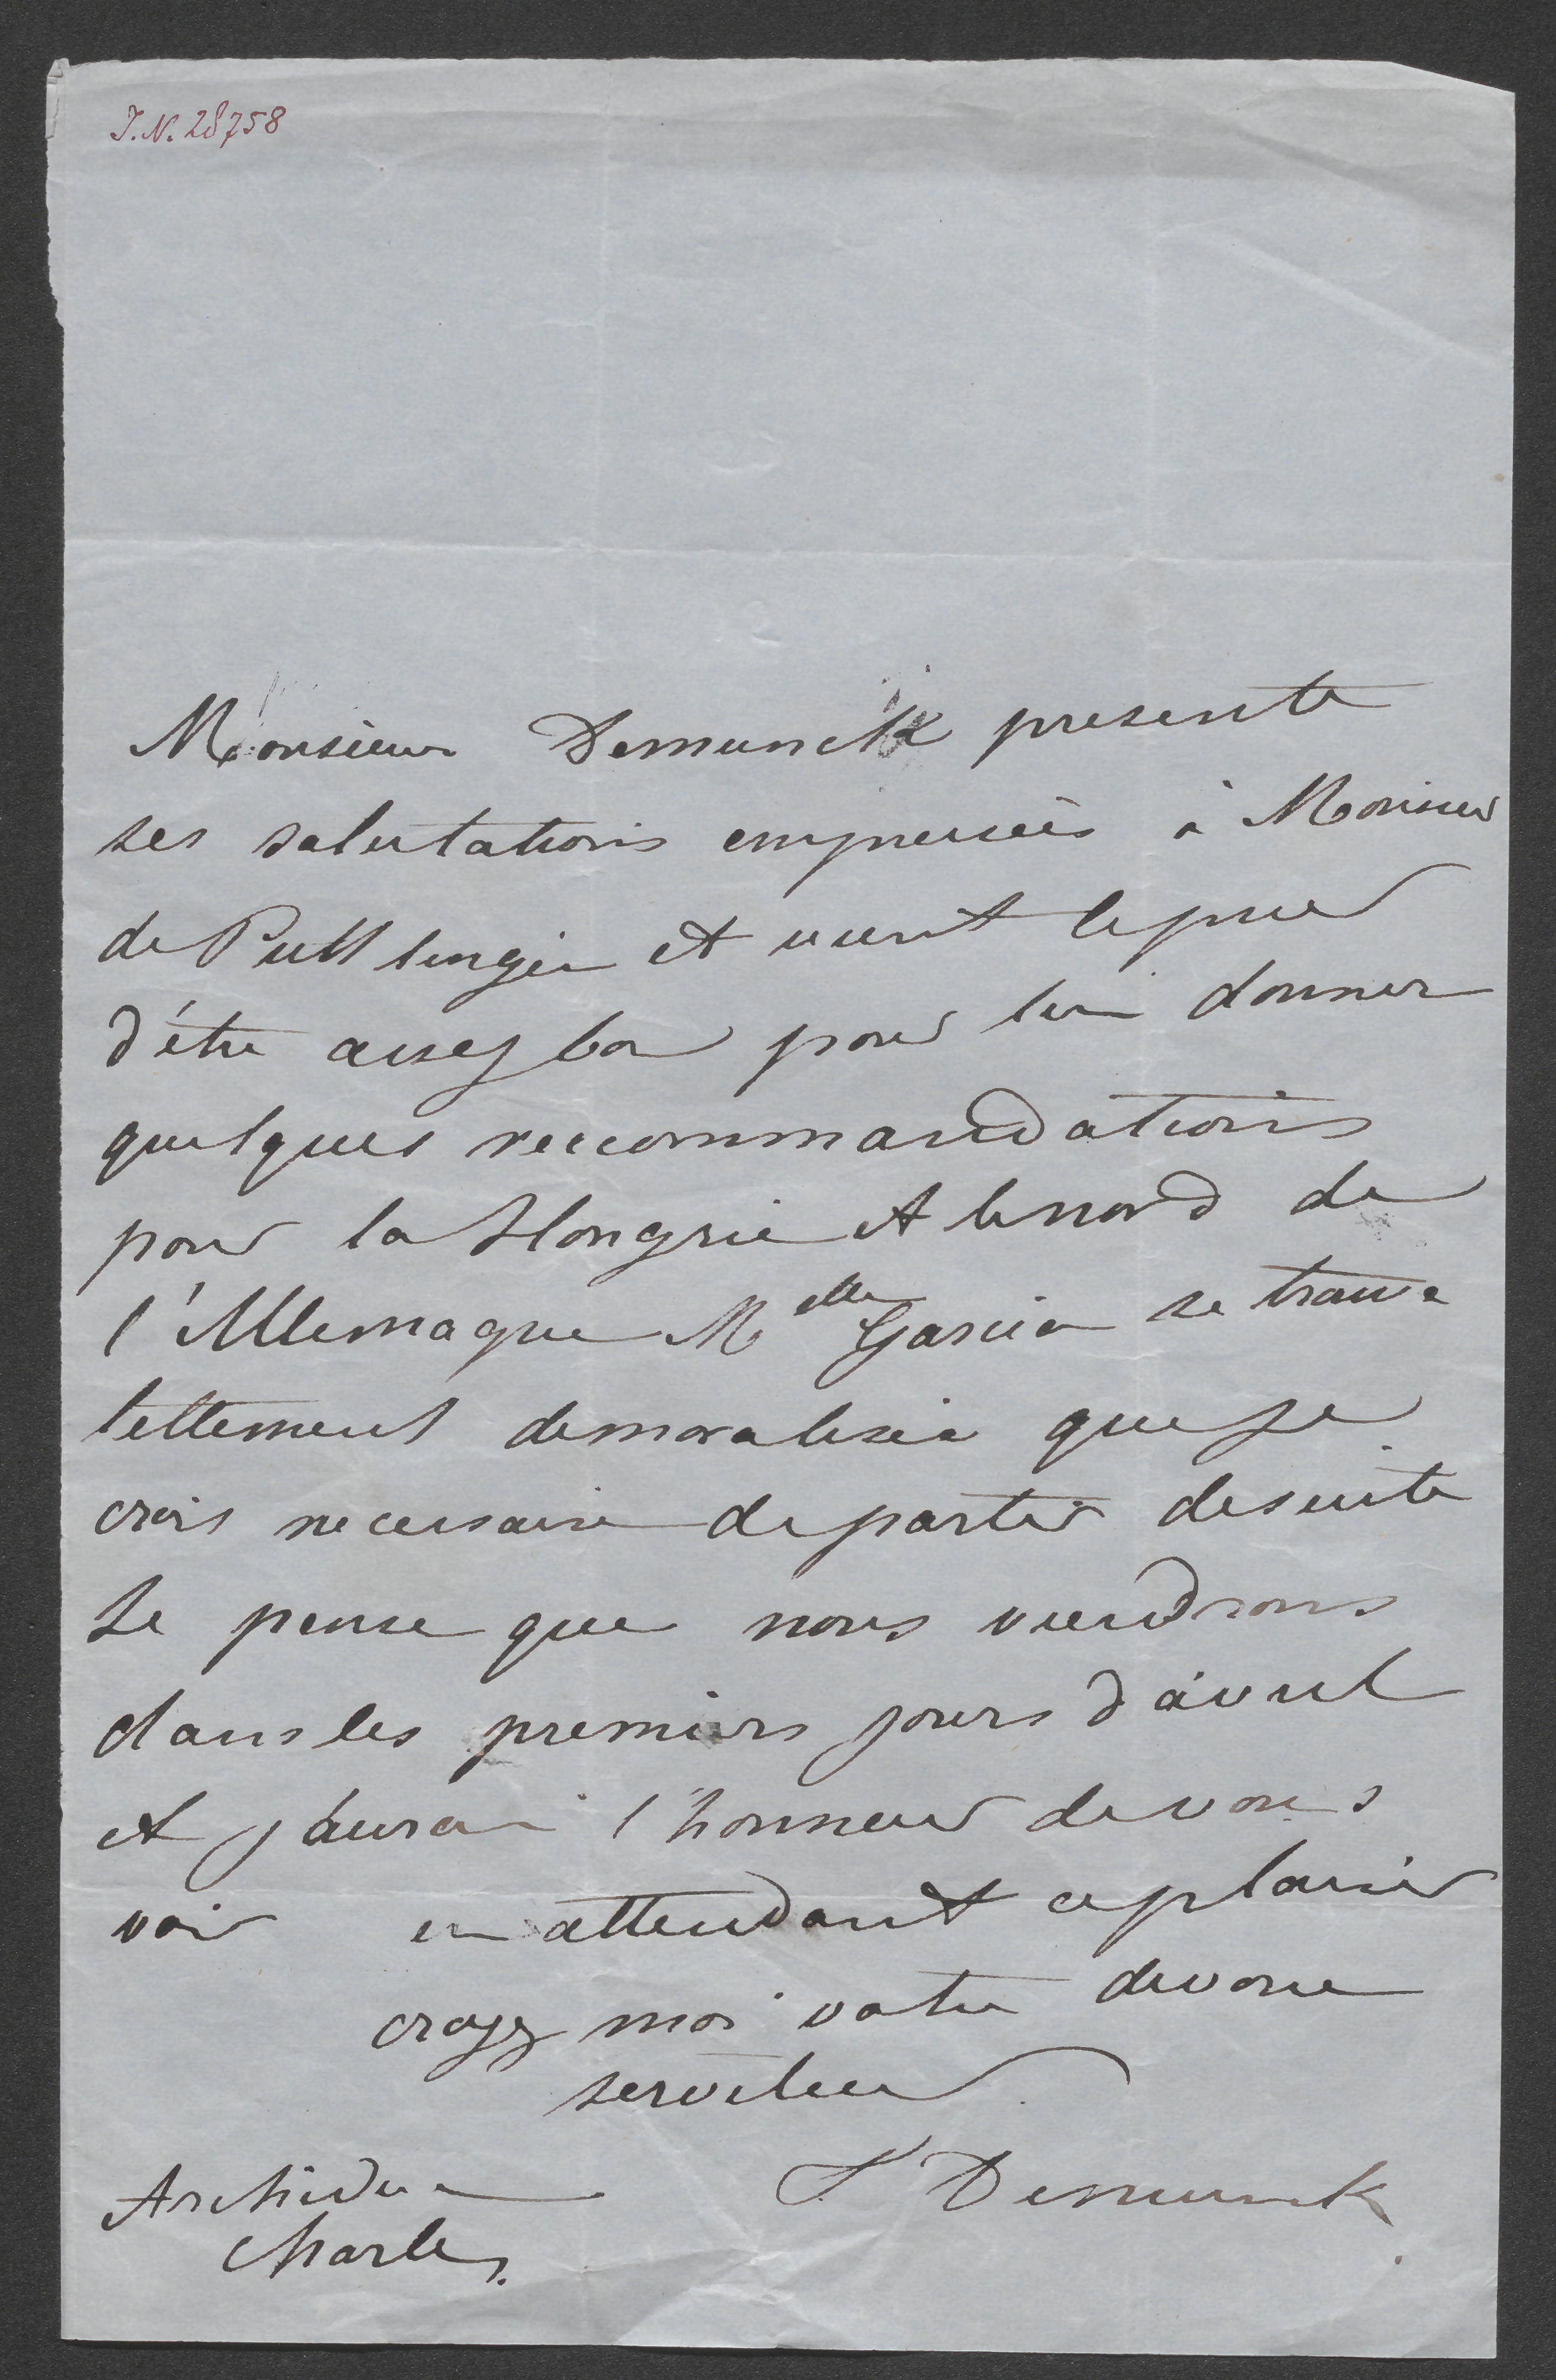 I.N. 28758
Monsieur Demunck presente
ses salutations empressées à Monsieur
de Puttlingen et vient le prier
d'être assez bon pour lui donner
quelques reccommandations
pour la Hongrie et le nord de
l'Allemagne Melle Garcia se trouve
tellement demoralisée que je
crois necessaire de partir de suite
Je pense que nous viendrons
dans les premiers jours d'avril
et j'aurai l'honneur de vous
voir en attendant ce plaisir
croyez moi votre devoué
serviteur
Demunck
Archiduc
Charles.